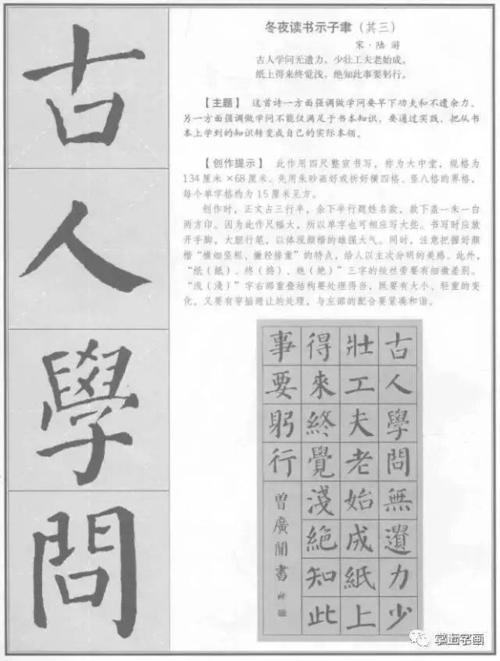 古
人
學
問
冬夜读书示子聿（其三）
宋·陆 游
古人学问无遗力，少壮工夫老始成。
纸上得来终觉浅，绝知此事要躬行。
【主题】 这首诗一方面强调做学问要平下功夫和不遗余力，
另一方面强调做学问不能仅满足于书本知识，要通过实践，把从书
本上学到的知识转变成自己的实际本领。
【创作提示】 此作用四尺整宣书写，称为大中堂，规格为
134厘米×68厘米。先用朱砂画好或折好横四格、竖八格的界格，
每个单字格约为15厘米见方。
创作时，正文占三行半，余下半行题姓名款，款下盖一朱一白
两方印。因为此作尺幅大，所以单字也可相应写大些。书写时应放
开手脚，大胆行笔，以体现颜楷的雄强大气。同时，注意把握好颜
楷“横细竖粗、撇轻捺重”的特点，给人以主次分明的美感。此外，
“纸（紙）、终（終）、绝（絶）”三字的绞丝旁要有细微差别，
“浅（淺）”字右部重叠结构要处理得当，既要有大小、轻重的变
化，又要有穿插避让的处理，与左部的配合要紧凑和谐。
古人學問無遺力少
壯工夫老始成紙上
得來終覺淺絶知此
事要躬行
曾廣聞書
掌上字画